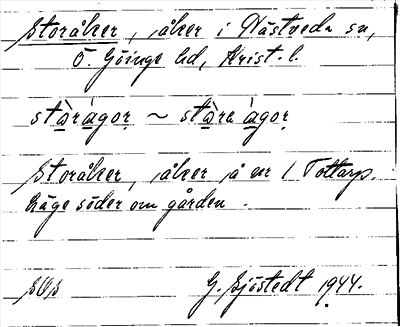 Storåker, åker i Nästveda sn,
Ö. Göinge hd, Krist. l.
stòràgor ~ stòra àgor
Storåker, åker å nr 1 Tottarp.
Läge söder om gården.
G. Sjöstedt 1944.